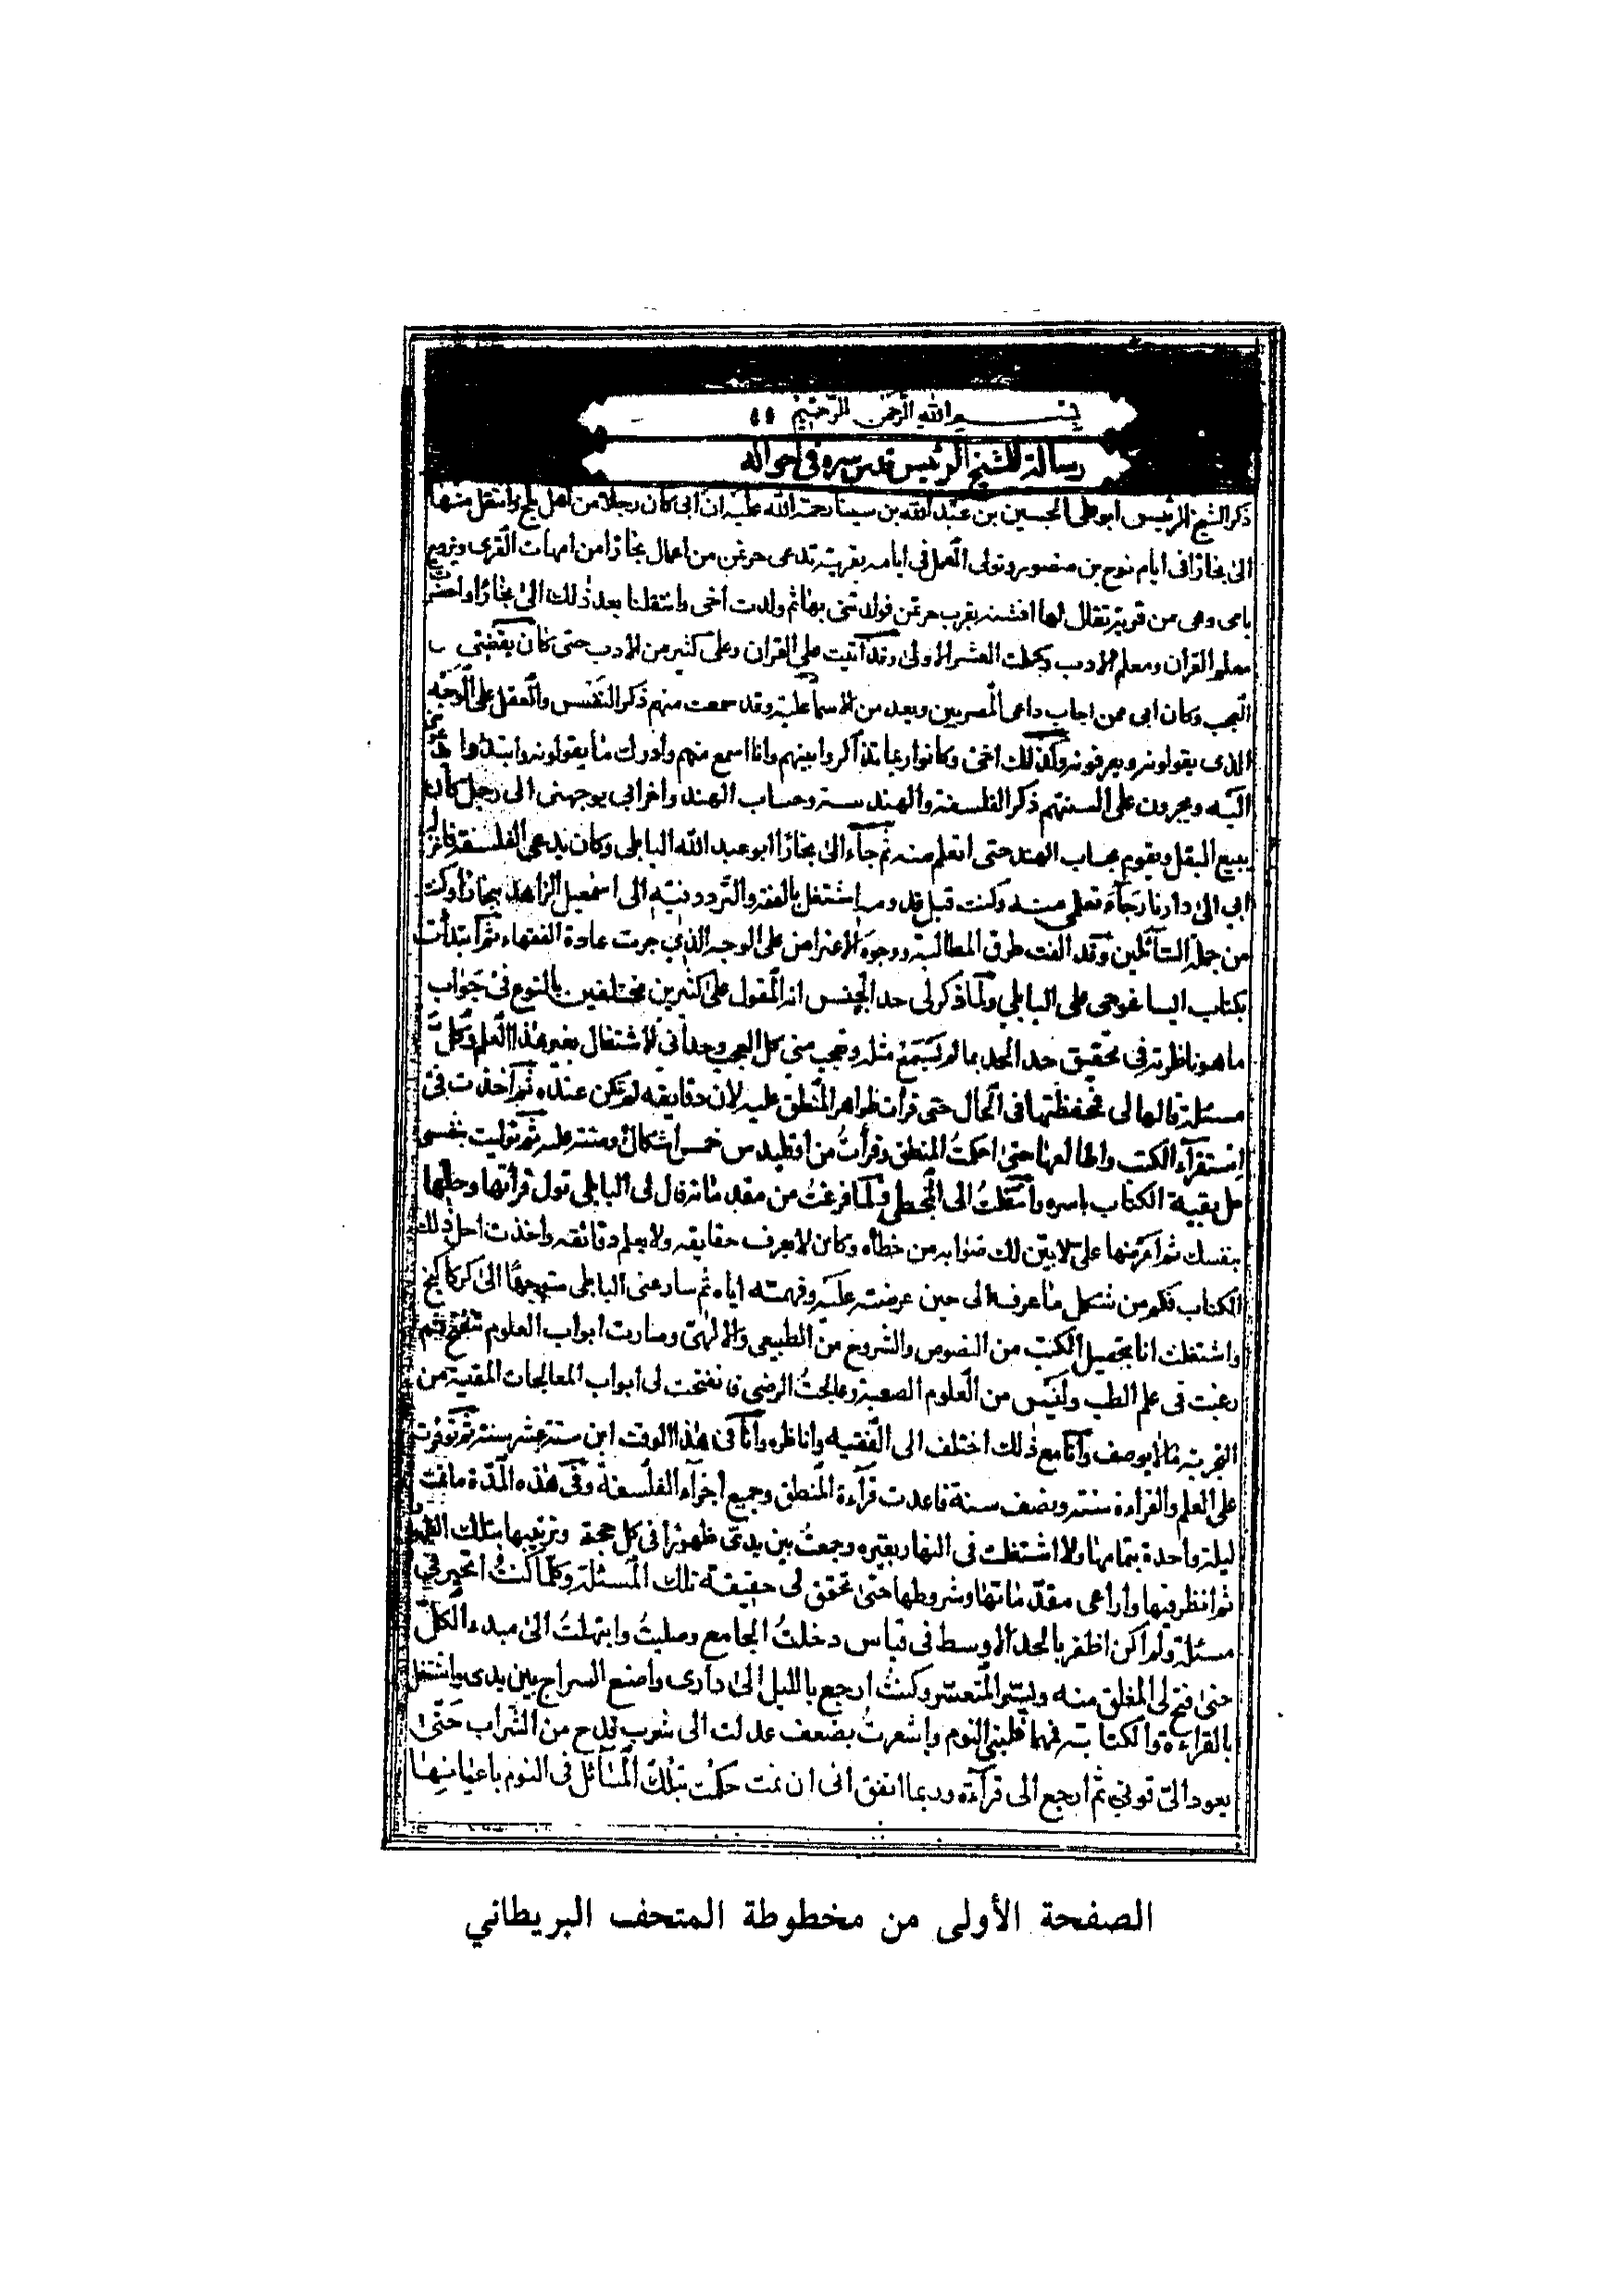 بسم الله الرحمن الرحيم
رسالة للشيخ الرئيس قدس سره في احواله
ذكر الشيخ الرئيس ابو علي الحسين بن عبد الله بن سينا رحمة الله عليه ان ابى كان رجلا من اهل بلخ وانتقل منها
الى بخارا فى ايام نوح بن منصور وتولى العمل فى ايامه بقرية تدعى خرغن من اعمال بخارا من امهات القرى وتزوج
بامى وهى من قرية يقال لها افشنه بقرب خرغن فولدتنى بها ثم ولدت اخى وانتقلنا بعد ذلك الى بخارا واحضرت
معلم القران ومعلم الادب وكملت العشر الاولى وقد اتيت على القران وعلى كثير من الادب حتى كان يقضى
العجب وكان ابى ممن اجاب داعى المصريين ويعد من الاسماعلية وقد سمعت منهم ذكر النفس والعقل على الوجه
الذى يقولونه ويعرفونه وكذلك اخى وكانوا ربما تذاكروا بينهم وانا اسمع منهم وادرك ما يقولونه وابتدوا
اليه ويجرون على السنتهم ذكر الفلسفة والهندسة وحساب الهند واخر ابى يوجهنى الى رجل كان
يبيع البقل ويقوم بحساب الهند حتى اتعلم منه ثم جاء الى بخارا ابو عبد الله الباىلى وكان يدعى الفلسفة فانزله
ابى الى دارنا رجاء تعلمى منه وكنت قبل قدومه اشتغل بالفقه والتردد فيه الى اسمعيل الزاهد ببخارا وكنت
من جملة السائلين وقد الفت طرق المطالبة ووجوه الاعتراض على الوجه الذى جرت عادة الفقهاء ثم ابتدأت
بكتاب ايساغوجى على البابلي ولما ذكر لى حد الجنس انه المقول على كثيرين مختلفين بالنوع فى جواب
ما هو ناظرته فى تحقيق حد الحد بما لم يسمع مثله وتعجب منى كل العجب وحدانى للاشتغال بغير هذا العلم وكل
مسئلة قالها لى فحفظتها فى الحال حتى قرات ظواهر المنطق عليه لان دقايقه لم تكن عنده ثم اخذت فى
استقراء الكتب واطالعها حتى احكمت المنطق وقرأت من اوقليدس خمس اشكال وستة عليه ثم توليت بنفسى
حل بقية الكتاب باسره وانتقلت الى المجسطى ولما فرغت من مقدماته قال لى البابلى تول قرأتها وحلها
بنفسك ثم اعرضها على لابين لك صوابه من خطاه وكان لا يعرف حقايقه ولا يعلم دقائقه واخذت احل ذلك
الكتاب فكم من شكل ما عرفه الى حين عرضته عليه وفهمته اياه ثم سار عنى البابلى متوجها الى كركانج
واشتغلت انا بتحصيل الكتب من النصوص والشروح من الطبيعى والالهى وصارت ابواب العلوم تنفتح ثم
رغبت فى علم الطب وليس من العلوم الصعبة وعالجت المرضى فانفتحت لى ابواب المعالجات المقتبسة من
التجربة مالا يوصف وانا مع ذلك اختلف الى الفقيه واناظره وانا فى هذا الوقت ابن ستة عشر سنة ثم توفرت
على العلم والقراءة سنة ونصف سنة فاعدت قرآءة المنطق وجميع اجزاء الفلسفة وفى هذه المدة ما نمت
ليلة واحدة بتمامها ولا اشتغلت فى النهار بغيره وجمعت بين يدى ظهورا فى كل حجة وترتيبها بتلك
ثم انظر فيها واراعى مقدماتها وشروطها حتى تحقق لى حقيقة تلك المسئلة وكلما كنت اتحير فى
مسئلة ولم اكن اظفر بالحد الاوسط فى قياس دخلت الجامع وصليت وابتهلت الى مبدء الكل
حتى فتح لى المغلق منه ويسر المتعسر وكنت ارجع بالليل الى دارى واضع السراج بين يدى واشتغل
بالقراءة والكتابة فمهما غلبنى النوم واشعرت بضعف عدلت الى شرب قدح من الشراب حتى
يعود الى قوتي ثم ارجع الى قرآءة وربما اتفق انى ان نمت حكمت بتلك المسائل فى النوم باعيانها
الصفحة الأولى من مخطوطة المتحف البريطاني